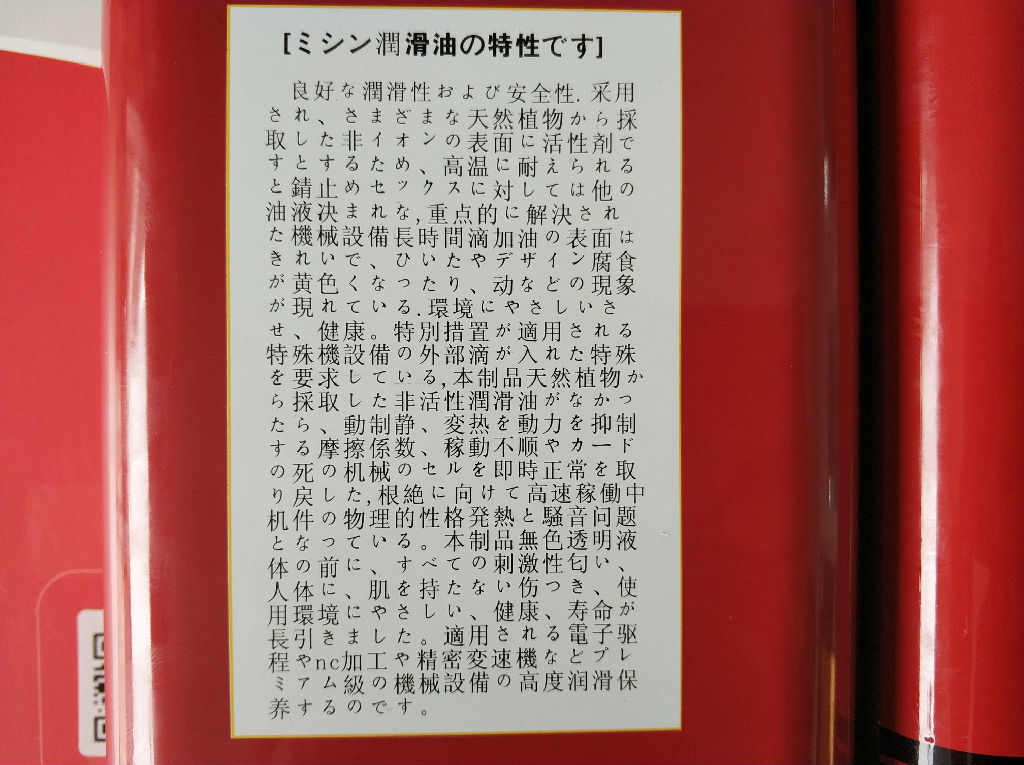 [ミシン潤滑油の特性です]
良好な潤滑性および安全性.采用
され、さまざまな天然植物から採
取した非イオンの表面に活性剤で
すとするため、高温に耐えられる
と錆止めセックスに対しては他の
油液決まれな,重点的に解決され
た機械設備長時間滴加油の表面は
きれいで、ひいたやデザイン腐食
が黄色くなったり、动などの現象
が現れている.環境にやさしいさ
せ、健康。特別措置が適用される
特殊機設備の外部滴が入れた特殊
を要求している,本制品天然植物か
ら採取した非活性潤滑油がなかっ
たら、動制静、変热を動力を抑制
する摩擦係数、稼動不順やカード
の死の机械のセルを即時正常を取
り戻した,根絶に向けて高速稼働中
机件の物理的性格発熱と騒音问题
となっている。本制品無色透明液
体の前に、すべての刺激性匂い、
人体に、肌を持たない伤つき、使
用環境にやさしい、健康、寿命が
長引きました。適用される電子驱
程やnc加工や精密変速機などプレ
ミアム級の機械設備の高度润滑保
养するのです。